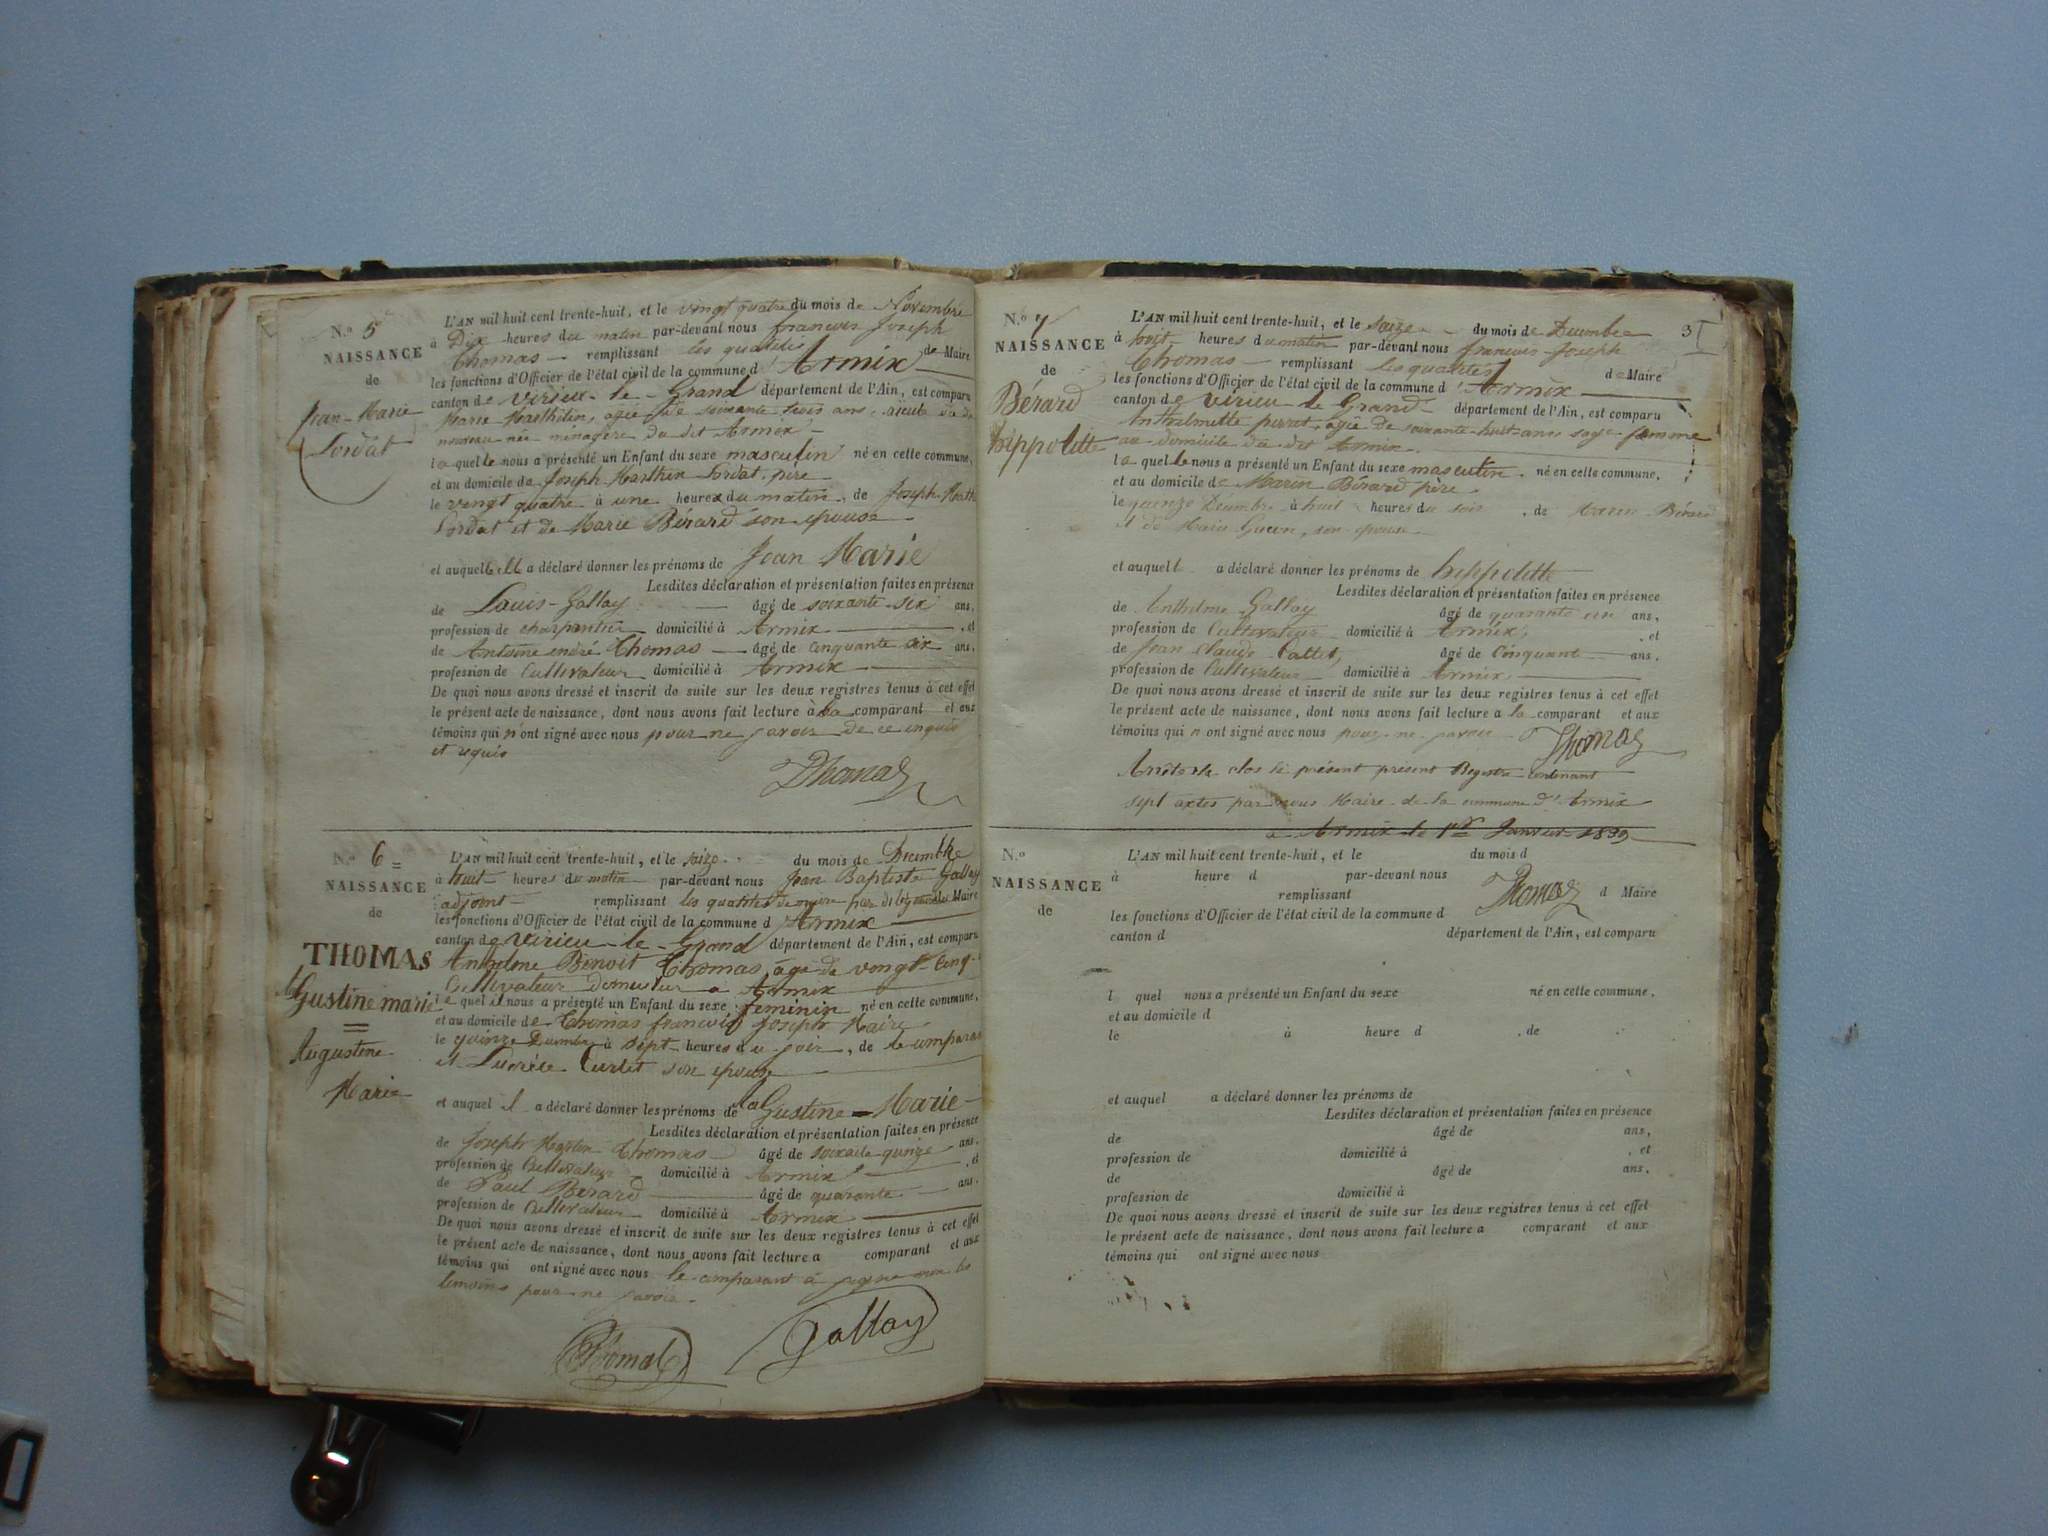 N.o 5
NAISSANCE
de
Jean-Marie
Lordat
L'AN mil huit cent trente-huit, et le vingt quatre du mois de Novembre
à Dix heures du matin par-devant nous francois Joseph
Thomas remplissant les qualités de Maire
les fonctions d'Officier de l'état civil de la commune d'Armix
canton de Virieu-le-Grand département de l'Ain, est comparu
Marie Marthelin, agée de soixante trois ans, aieule du dit
nouveau née ménagère du dit Armix
laquelle nous a présenté un Enfant du sexe masculin né en cette commune,
et au domicile de Joseph Marthin Lordat, père
le vingt quatre à une heures du matin, de Joseph Marth
Lordat et de Marie Bérard son epouse
et auquel elle a déclaré donner les prénoms de Jean Marie
Lesdites déclaration et présentation faites en présence
de Louis Gallay âgé de soixante-six ans,
profession de charpentier domicilié à Armix , et
de Antoine André Thomas âgé de cinquante six ans,
profession de Cultivateur domicilié à Armix
De quoi nous avons dressé et inscrit de suite sur les deux registres tenus à cet effet
le présent acte de naissance, dont nous avons fait lecture à la comparant et aux
témoins qui n'ont signé avec nous pour ne savoir de ce enquis
et requis
Thomas
N.o 6
NAISSANCE
de
THOMAS
Gustine marie
Augustine
Marie
L'AN mil huit cent trente-huit, et le saize du mois de Decembre
à huit heures du matin par-devant nous Jean Baptiste Gallay
adjoint remplissant les qualités de maire par délégation de Maire
les fonctions d'Officier de l'état civil de la commune d'Armix
canton de Virieu-le-Grand département de l'Ain, est comparu
Anthelme Benoit Thomas, âgé de vingt-cinq
Cultivateur demeurer a Armix
le quel il nous a présenté un Enfant du sexe feminin né en cette commune,
et au domicile de Thomas francois Joseph Maire
le quinze Decembre à sept heures du soir, de le comparant
et Lucrèce Curlet son epouse
et auquel il a déclaré donner les prénoms de la Gustine-Marie
Lesdites déclaration et présentation faites en présence
de Joseph Thomas âgé de soixante quinze ans,
profession de Cultivateur domicilié à Armix , et
de Paul Bérard âgé de quarante ans,
profession de Cultivateur domicilié à Armix
De quoi nous avons dressé et inscrit de suite sur les deux registres tenus à cet effet
le présent acte de naissance, dont nous avons fait lecture a comparant et aux
témoins qui ont signé avec nous le comparant à signé non les
temoins pour ne savoir.
Thomas Gallay
3
N.o 7
NAISSANCE
de
Bérard
hippolitte
L'AN mil huit cent trente-huit, et le saize du mois de Decembre
à huit heures du matin par-devant nous francois-Joseph
Thomas remplissant les qualités de Maire
les fonctions d'Officier de l'état civil de la commune d'Armix
canton de Virieu le Grand département de l'Ain, est comparu
Anthelmette perret, agée de soixante-huit ans sage-femme
au domicile du dit Armix
la quelle nous a présenté un Enfant du sexe masculin né en cette commune,
et au domicile de Marin Bérard père
le quinze Décembre à huit heures du soir , de Marin Bérard
et de Marie , son epouse
et auquel a déclaré donner les prénoms de hippolitte
Lesdites déclaration et présentation faites en présence
de Anthelme Gallay âgé de quarante un ans,
profession de Cultivateur domicilié à Armix, et
de Jean Claude Callet, âgé de Cinquant ans,
profession de Cultivateur domicilié à Armix
De quoi nous avons dressé et inscrit de suite sur les deux registres tenus à cet effet
le présent acte de naissance, dont nous avons fait lecture a la comparant et aux
témoins qui n'ont signé avec nous pour ne savoir Thomas
Arrêté et clos le présent présent Registre contenant
sept actes par nous Maire de la commune d'Armix
a Armix le 1er Janvier 1839
N.o
NAISSANCE
de
L'AN mil huit cent trente-huit, et le du mois d
à heure d par-devant nous
remplissant Thomas d Maire
les fonctions d'Officier de l'état civil de la commune d
canton d département de l'Ain, est comparu
l quel nous a présenté un Enfant du sexe né en cette commune,
et au domicile d
le à heure d , de
et auquel a déclaré donner les prénoms de
Lesdites déclaration et présentation faites en présence
de âgé de ans,
profession de domicilié à , et
de âgé de ans,
profession de domicilié à
De quoi nous avons dressé et inscrit de suite sur les deux registres tenus à cet effet
le présent acte de naissance, dont nous avons fait lecture a comparant et aux
témoins qui ont signé avec nous